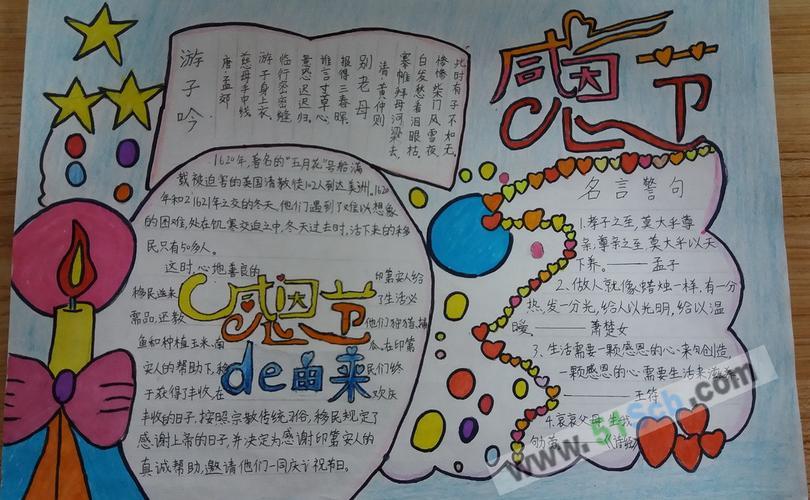 感恩节
游子吟
唐·孟郊
慈母手中线
游子身上衣
临行密密缝
意恐迟迟归。
谁言寸草心
报得三春晖
别老母
清·黄仲则
搴帷拜母河梁去,
白发愁看泪眼枯,
惨惨柴门风雪夜,
此时有子不如无。
1620年,著名的"五月花"号船满
载被迫害的英国清教徒102人到达美洲。1620
年和1621年之交的冬天,他们遇到了难以想象
的困难,处在饥寒交迫之中,冬天过去时,活下来的移
民只有50多人。
这时,心地善良的
印第安人给
移民送来
了生活必
需品,还教
他们狩猎、捕
鱼和种植玉米、南
瓜,在印第
安人的帮助下,移
民们终
于获得了丰收,在
欢庆
丰收的日子,按照宗教传统习俗,移民规定了
感谢上帝的日子,并决定为感谢印第安人的
真诚帮助,邀请他们一同庆祝节日。
感恩节
de由来
名言警句
1.孝子之至,莫大乎尊
亲;尊亲之至,莫大乎以天
下养。——孟子
2、做人就像蜡烛一样,有一分
热,发一分光,给人以光明,给以温
暖。——萧楚女
3、生活需要一颗感恩的心来创造,
一颗感恩的心需要生活来滋养
——王符
4.哀哀父母,生我
劬劳
《诗经》
www.51sch.com